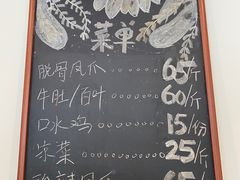 菜单
脱骨凤爪 65/斤
牛肚/百叶 60/斤
口水鸡 15/份
凉菜 25/斤